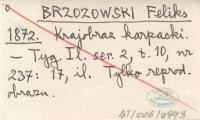 BRZOZOWSKI Feliks
1872. Krajobraz karpacki.
— Tyg. Il. ser. 2, t. 10, nr
237: 17, il. Tylko reprod.
obrazu.
GT/006/0943